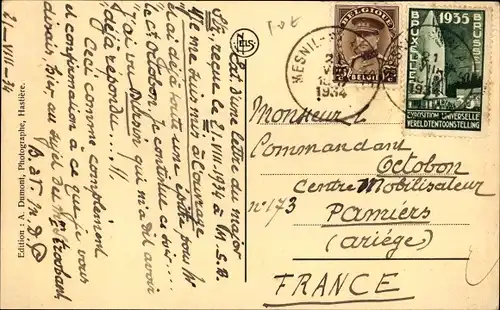 21-VIII-34
Est d'une lettre du major
Sty reçue le 21.VIII.1934 à M.S.B
"Je me suis mis à l'ouvrage
j'ai déjà toute une epître pour Mr
le Ct Octobon. Je continue ce soir...
J'ai vu qui m'a dit avoir
déjà répondu...."
Ceci comme complément
et confirmation à ce que je vous
disais, hier au sujet de
Edition : A. Dumont, Photographe, Hastière.
NELS
BELGIQUE
BELGIË
MESNIL
1934
1935
BRUXELLES
BRUSSEL
EXPOSITION UNIVERSELLE
WERELDTENTOONSTELLING
1934
Monsieur l
Commandant
Octobon
Centre Mobilisateur
n° 173
Pamiers
(Ariége)
FRANCE